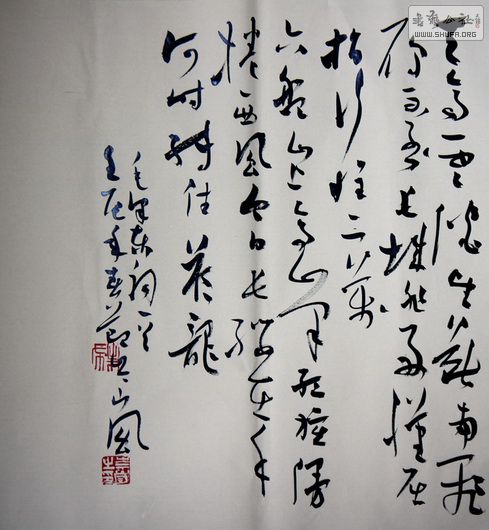 天高云淡望断南飞
雁不到长城非好汉屈
指行程二万
六盘山上高峰红旗漫
卷西风今日长缨在手
何时缚住苍龙
毛泽东词一首
壬辰年春节山风
书法公社
WWW.SHUFA.ORG